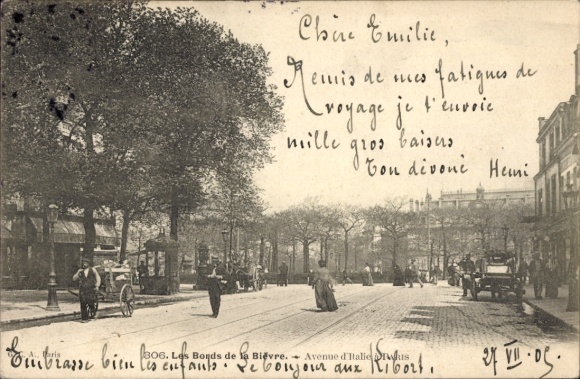 Chère Emilie,
Remis de mes fatigues de
voyage je t'envoie
mille gros baisers
Ton dévoué Henri
C. L. A., Paris
306. Les Bords de la Bièvre. - Avenue d'Italie
Embrasse bien les enfants. Le bonjour aux Kibort.
27 VII 05.